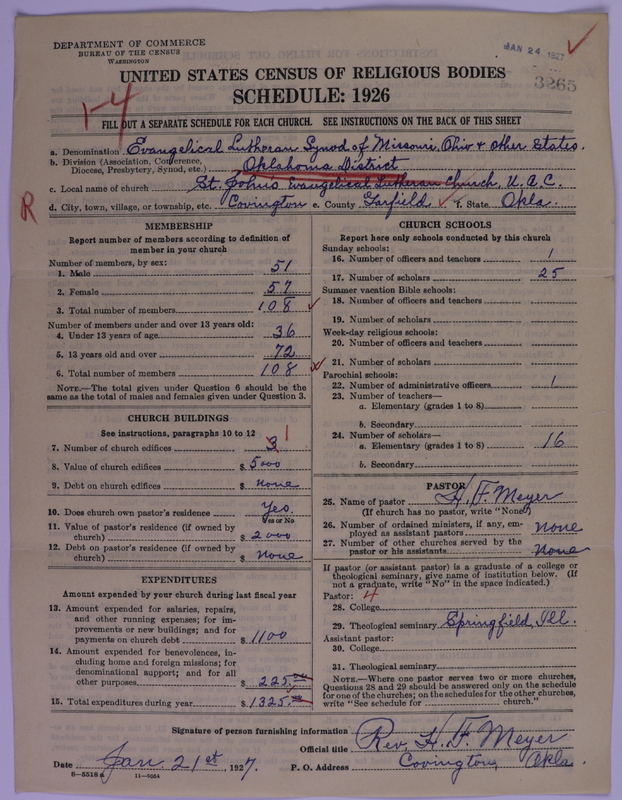 DEPARTMENT OF COMMERCE
BUREAU OF THE CENSUS
WASHINGTON
JAN 24 1927
3265
UNITED STATES CENSUS OF RELIGIOUS BODIES
SCHEDULE: 1926
1-4
FILL OUT A SEPARATE SCHEDULE FOR EACH CHURCH. SEE INSTRUCTIONS ON THE BACK OF THIS SHEET
a. Denomination Evangelical Lutheran Synod of Missouri, Ohio & other States.
b. Division (Association, Conference, Diocese, Presbytery, Synod, etc.) Oklahoma District
c. Local name of church St. John's Evangelical Lutheran Church, U.A.C.
R
d. City, town, village, or township, etc. Covington e. County Garfield f. State Okla.
MEMBERSHIP
Report number of members according to definition of
member in your church
Number of members, by sex:
1. Male 51
2. Female 57
3. Total number of members 108
Number of members under and over 13 years old:
4. Under 13 years of age 36
5. 13 years old and over 72
6. Total number of members 108
NOTE.—The total given under Question 6 should be the
same as the total of males and females given under Question 3.
CHURCH BUILDINGS
See instructions, paragraphs 10 to 12
7. Number of church edifices 3 1
8. Value of church edifices $ 5000
9. Debt on church edifices $ none
10. Does church own pastor's residence Yes
Yes or No
11. Value of pastor's residence (if owned by
church) $ 2000
12. Debt on pastor's residence (if owned by
church) $ none
EXPENDITURES
Amount expended by your church during last fiscal year
13. Amount expended for salaries, repairs,
and other running expenses; for im-
provements or new buildings; and for
payments on church debt $ 1100
14. Amount expended for benevolences, in-
cluding home and foreign missions; for
denominational support; and for all
other purposes $ 225.00
15. Total expenditures during year $ 1325.00
CHURCH SCHOOLS
Report here only schools conducted by this church
Sunday schools:
16. Number of officers and teachers 1
17. Number of scholars 25
Summer vacation Bible schools:
18. Number of officers and teachers
19. Number of scholars
Week-day religious schools:
20. Number of officers and teachers
21. Number of scholars
Parochial schools:
22. Number of administrative officers 1
23. Number of teachers—
a. Elementary (grades 1 to 8)
b. Secondary
24. Number of scholars—
a. Elementary (grades 1 to 8) 16
b. Secondary
PASTOR
25. Name of pastor H. F. Meyer
(If church has no pastor, write "None")
26. Number of ordained ministers, if any, em-
ployed as assistant pastors none
27. Number of other churches served by the
pastor or his assistants None
If pastor (or assistant pastor) is a graduate of a college or
theological seminary, give name of institution below. (If
not a graduate, write "No" in the space indicated.)
Pastor: 4
28. College
29. Theological seminary Springfield, Ill.
Assistant pastor:
30. College
31. Theological seminary
NOTE.—Where one pastor serves two or more churches,
Questions 28 and 29 should be answered only on the schedule
for one of the churches; on the schedules for the other churches,
write "See schedule for church."
Signature of person furnishing information Rev. H. F. Meyer
Official title
Date Jan. 21st, 1927. P. O. Address Covington, Okla.
8—5518a 11—9064